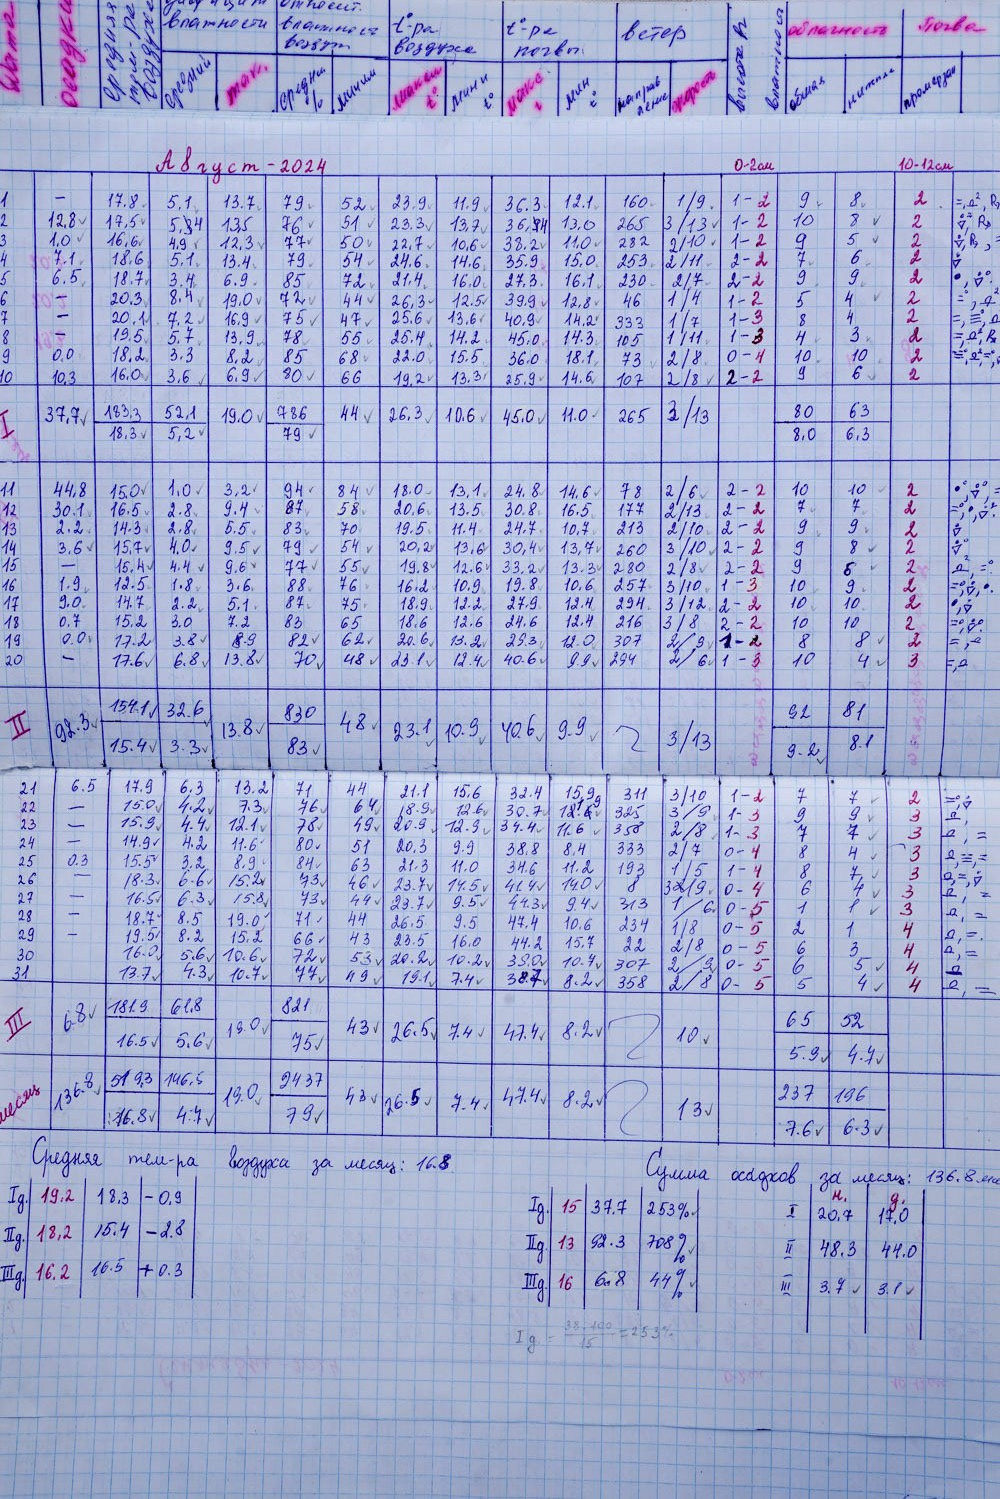 дата осадки средняя тем-ра воздуха дефицит влажности относит. влажность воздуха t°-ра воздуха t°-ра почвы ветер облачность Почва
средний макс. средняя % миним макси t° мин t° макс t° мин t° направление скорость общая нижняя промерзан
Август - 2024 0-2см 10-12см
1 — 17.8 5,1 13.7 79 52 23.9 11.9 36.3 12.1 160 1/9 1-2 9 8 2
2 12,8 17,5 76 51 23.3 13,7 13,0 265 3/13 1-2 10 8 2
3 1,0 16,6 4.9 12,3 77 50 22,7 10,6 38.2 11.0 282 2/10 1-2 9 5 2
4 7.1 18.6 5.1 13.4 79 54 24.6 14.6 35.9 15.0 253 2/11 2-2 7 6 2
5 6.5 18.7 3.4 6.9 85 72 21.4 16.0 27.3 16.1 230 2/7 2-2 9 9 2
6 — 20,3 8.4 19.0 72 44 26,3 12.5 39.9 12.8 46 1/4 1-2 5 4 2
7 — 20.1 7.2 16.9 75 47 25.6 13.6 40,9 14.2 333 1/7 1-3 8 4 2
8 — 19.5 5.7 13,9 78 55 25.4 14.2 45.0 14.3 105 1/11 1-3 4 3 2
9 0.0 18,2 3.3 8,2 85 68 22.0 15.5 36.0 18.1 73 2/8 0-4 10 10 2
10 10,3 16.0 3,6 6.9 80 66 19,2 13.3 25.9 14.6 107 2/8 2-2 9 6 2
I 37,7 183,3 52,1 19.0 786 44 26,3 10.6 45.0 11.0 265 3/13 80 63
18,3 5,2 79 8,0 6,3
11 44,8 15,0 1,0 3,2 94 84 18.0 13,1 24.8 14.6 78 2/6 2-2 10 10 2
12 30.1 16.5 2.8 9.4 87 58 20.6 13.5 30.8 16.5 177 2/13 2-2 7 7 2
13 2.2 14.3 2.8 5.5 83 70 19.5 11.4 24.7 10,7 213 2/10 2-2 9 9 2
14 3,6 15,7 4.0 9.5 79 54 20,2 13,6 30,4 13,7 260 3/10 2-2 9 8 2
15 — 15,4 4.4 9.6 77 55 19.8 12.6 33,2 13.3 280 2/8 2-2 9 2
16 1.9 12.5 1.8 3.6 88 76 16,2 10,9 19.8 10.6 257 3/10 1-3 10 9 2
17 9.0 14.7 2.2 5,1 87 75 18,9 12.2 27.9 12.4 294 3/12 2-2 10 10 2
18 0.7 15.2 3.0 7.2 83 65 18,6 12.6 24.6 12.4 216 3/8 2-2 10 10 2
19 0.0 17.2 3.8 8.9 82 62 20.6 13.2 29.3 12.0 307 2/9 1-2 8 8 2
20 — 17.6 6.8 13.8 70 48 23.1 12.4 40.6 9.9 294 2/6 1-3 10 4 3
II 92.3 154.1 32.6 13.8 830 48 23.1 10.9 40.6 9.9 3/13 92 81
15.4 3.3 83 9.2 8.1
21 6.5 17.9 6.3 13.2 71 44 21.1 15.6 32.4 15,9 311 3/10 1-2 7 7 2
22 — 15.0 4.2 7.3 76 64 18.9 12.6 30.7 325 3/9 1-3 9 9 3
23 — 15.9 4.4 12.1 78 49 20.9 12.9 34.4 11.6 358 2/8 1-3 7 7 3
24 — 14.9 4.2 11.6 80 51 20.3 9.9 38.8 8.4 333 2/7 0-4 8 4 3
25 0.3 15.5 3.2 8.9 84 63 21.3 11.0 34.6 11.2 193 1/5 1-4 8 7 3
26 — 18.3 6.6 15.2 73 46 23.7 14.5 41.4 14.0 8 0-4 6 4 3
27 — 16.5 6.3 15.8 73 44 23.7 9.5 44.3 9.4 313 1/6 0-5 1 1 3
28 — 18.7 8.5 19.0 71 44 26.5 9.5 47.4 10.6 234 1/8 0-5 2 1 4
29 — 19.5 8.2 15.2 66 43 23.5 16.0 44.2 15.7 22 2/8 0-5 6 3 4
30 16.0 5.6 10.6 72 53 20.2 10.2 39.0 10.4 307 2/9 0-5 6 5 4
31 13.7 4.3 10.7 77 49 19.1 7.4 38.7 8.2 358 2/8 0-5 5 4 4
III 6.8 181.9 61.8 19.0 821 43 26.5 7.4 47.4 8.2 10 65 52
16.5 5.6 75 5.9 4.7
месяц 136.8 519,3 146,5 19.0 2437 43 26.5 7.4 47.4 8.2 13 237 196
16.8 4.7 79 7.6 6.3
Средняя тем-ра воздуха за месяц: 16.8
Сумма осадков за месяц: 136.8 мм
н. д.
Iд. 19.2 18,3 -0,9 Iд. 15 37.7 253% I 20.7 17,0
IIд. 18,2 15.4 -2.8 IIд. 13 92.3 708% II 48.3 44.0
IIIд. 16.2 16.5 +0.3 IIIд. 16 6.8 44% III 3.7 3.1
Iд = 38·100/15 = 253%